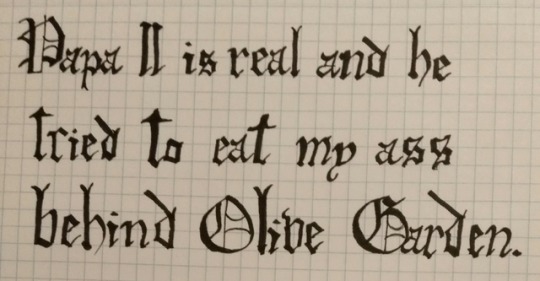 Papa II is real and he
tried to eat my ass
behind Olive Garden.